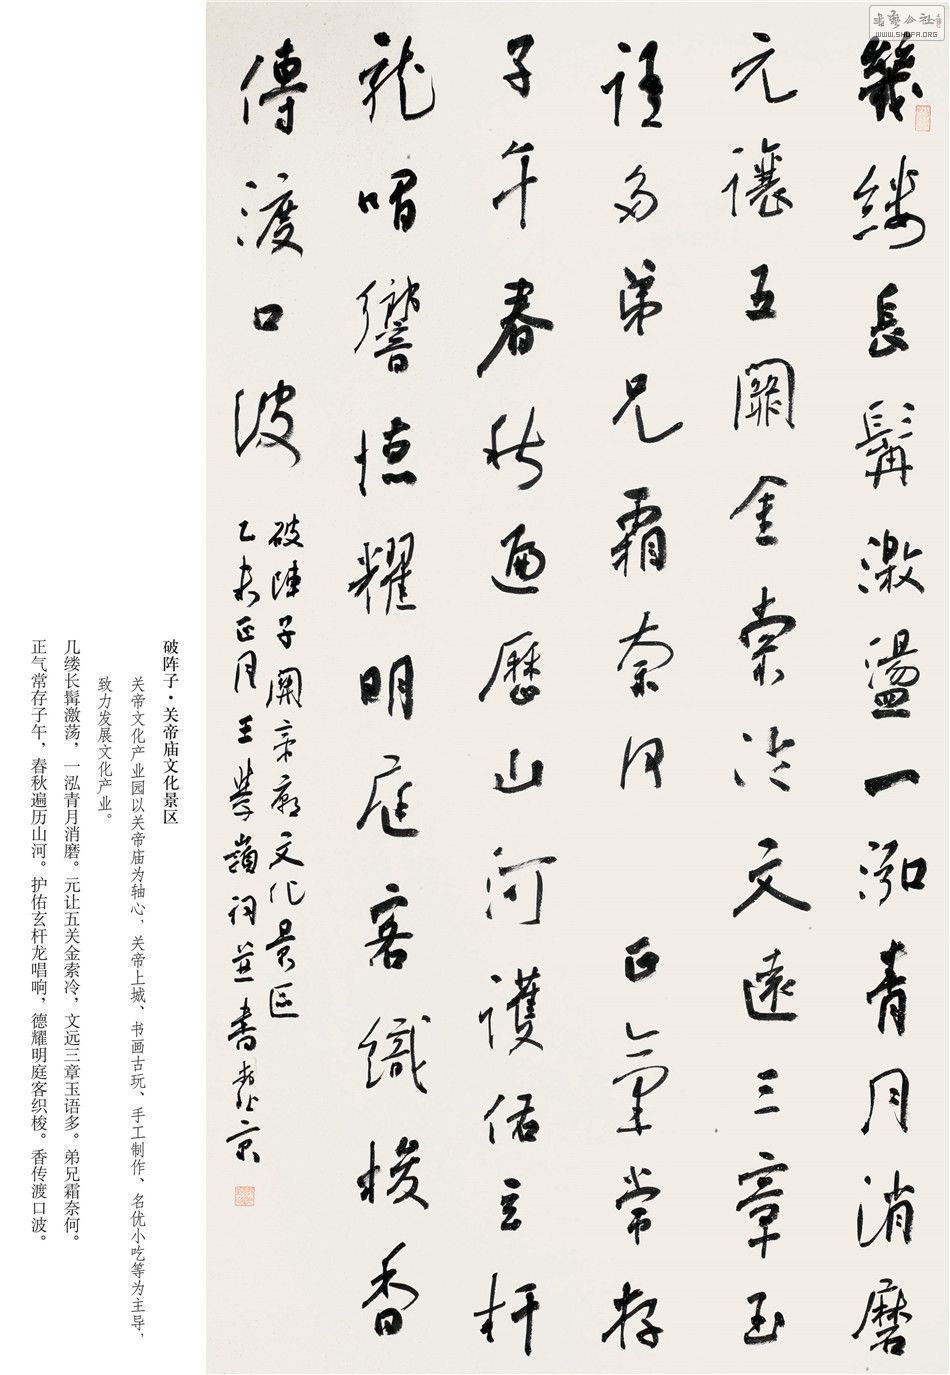 書藝公社
WWW.SHUFA.ORG
幾縷長髯激盪一泓青月消磨
元讓五關金索冷文遠三章玉
語多弟兄霜奈何 正氣常存
子午春秋遍歷山河護佑玄杆
龍唱響德耀明庭客織梭香
傳渡口波
破陣子關帝廟文化景區
乙未正月王學嶺詞並書於北京
破阵子·关帝庙文化景区
关帝文化产业园以关帝庙为轴心，关帝上城、书画古玩、手工制作、名优小吃等为主导，
致力发展文化产业。
几缕长髯激荡，一泓青月消磨。元让五关金索冷，文远三章玉语多。弟兄霜奈何。
正气常存子午，春秋遍历山河。护佑玄杆龙唱响，德耀明庭客织梭。香传渡口波。